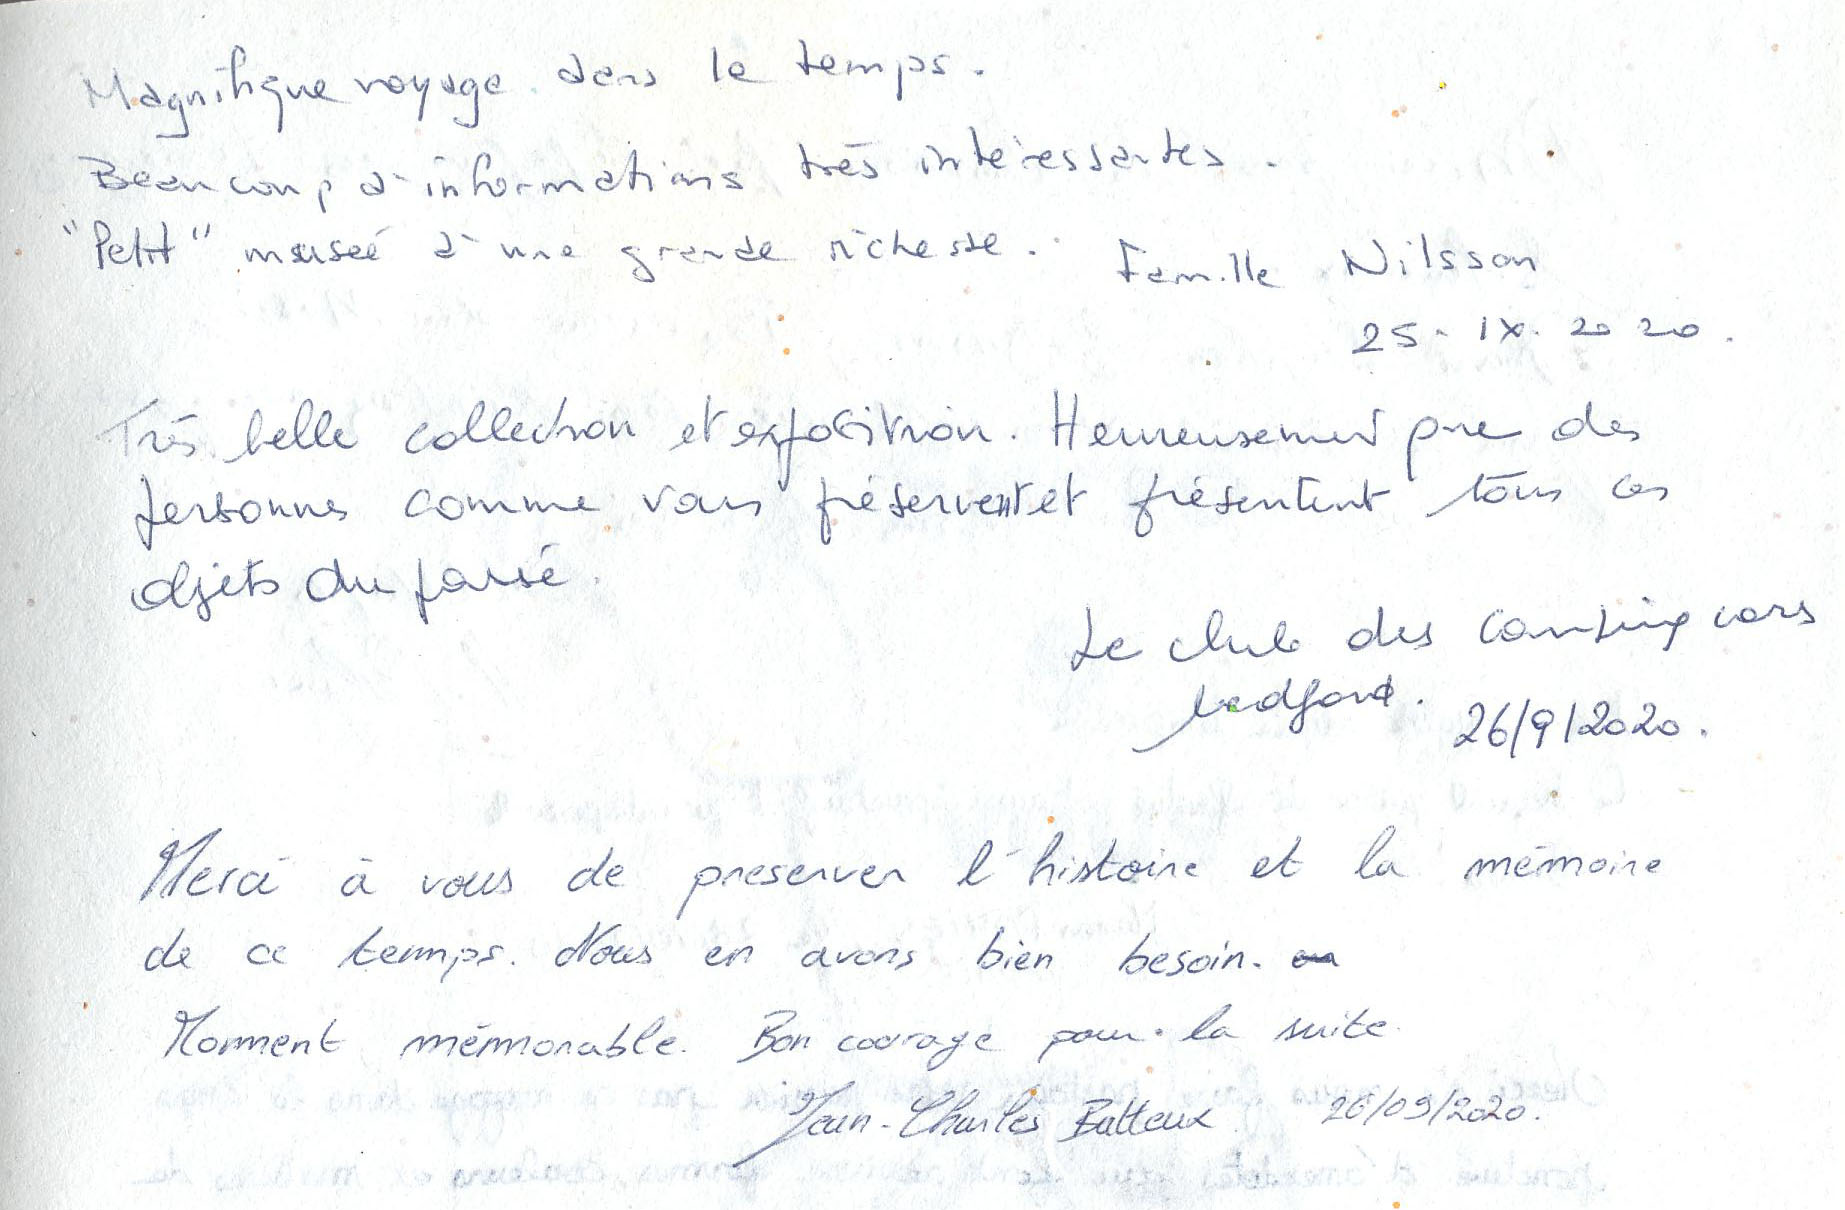 Magnifique voyage dans le temps.
Beaucoup d'informations très intéressantes.
"Petit" museé d'une grande richesse. Famille Nilsson
25. IX. 2020.
Très belle collection et exposition. Heureusement que des
personnes comme vous préservent et présentent tous ces
objets du passé.
Le club des camping cars
26/9/2020.
Merci à vous de preserver l'histoire et la mémoire
de ce temps. Nous en avons bien besoin.
Moment mémorable. Bon courage pour la suite
Jean-Charles Batteux 26/09/2020.